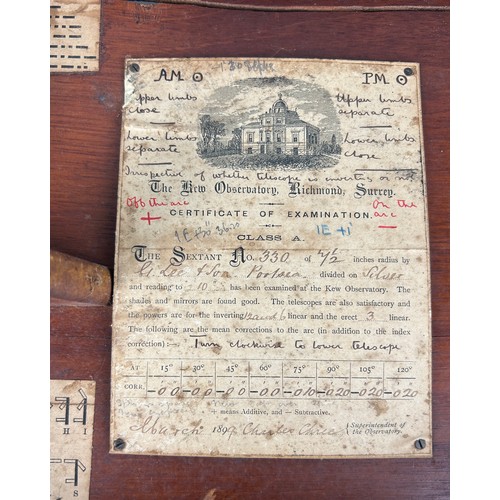 A.M ⊙ P.M ⊙
Upper limbs separate Upper limbs separate
Lower limbs separate close Lower limbs close
Irrespective of whether telescope is inverting or not
The Kew Observatory, Richmond, Surrey.
Off the arc + On the arc −
CERTIFICATE OF EXAMINATION.
IE +1'
CLASS A.
THE SEXTANT No. 330 of 7½ inches radius by
G. Lee & Son Portsea divided on Silver
and reading to 10" has been examined at the Kew Observatory. The
shades and mirrors are found good. The telescopes are also satisfactory and
the powers are for the inverting 12 and 6 linear and the erect 3 linear.
The following are the mean corrections to the arc (in addition to the index
correction):— Turn clockwise to lower telescope
AT 15° 30° 45° 60° 75° 90° 105° 120°
CORR. -0 0 -0 0 -0 0 -0 0 -0 10 -0 20 -0 20 -0 20
+ means Additive, and — Subtractive.
March 189 Charles Chree Superintendent of the Observatory.
H I
S